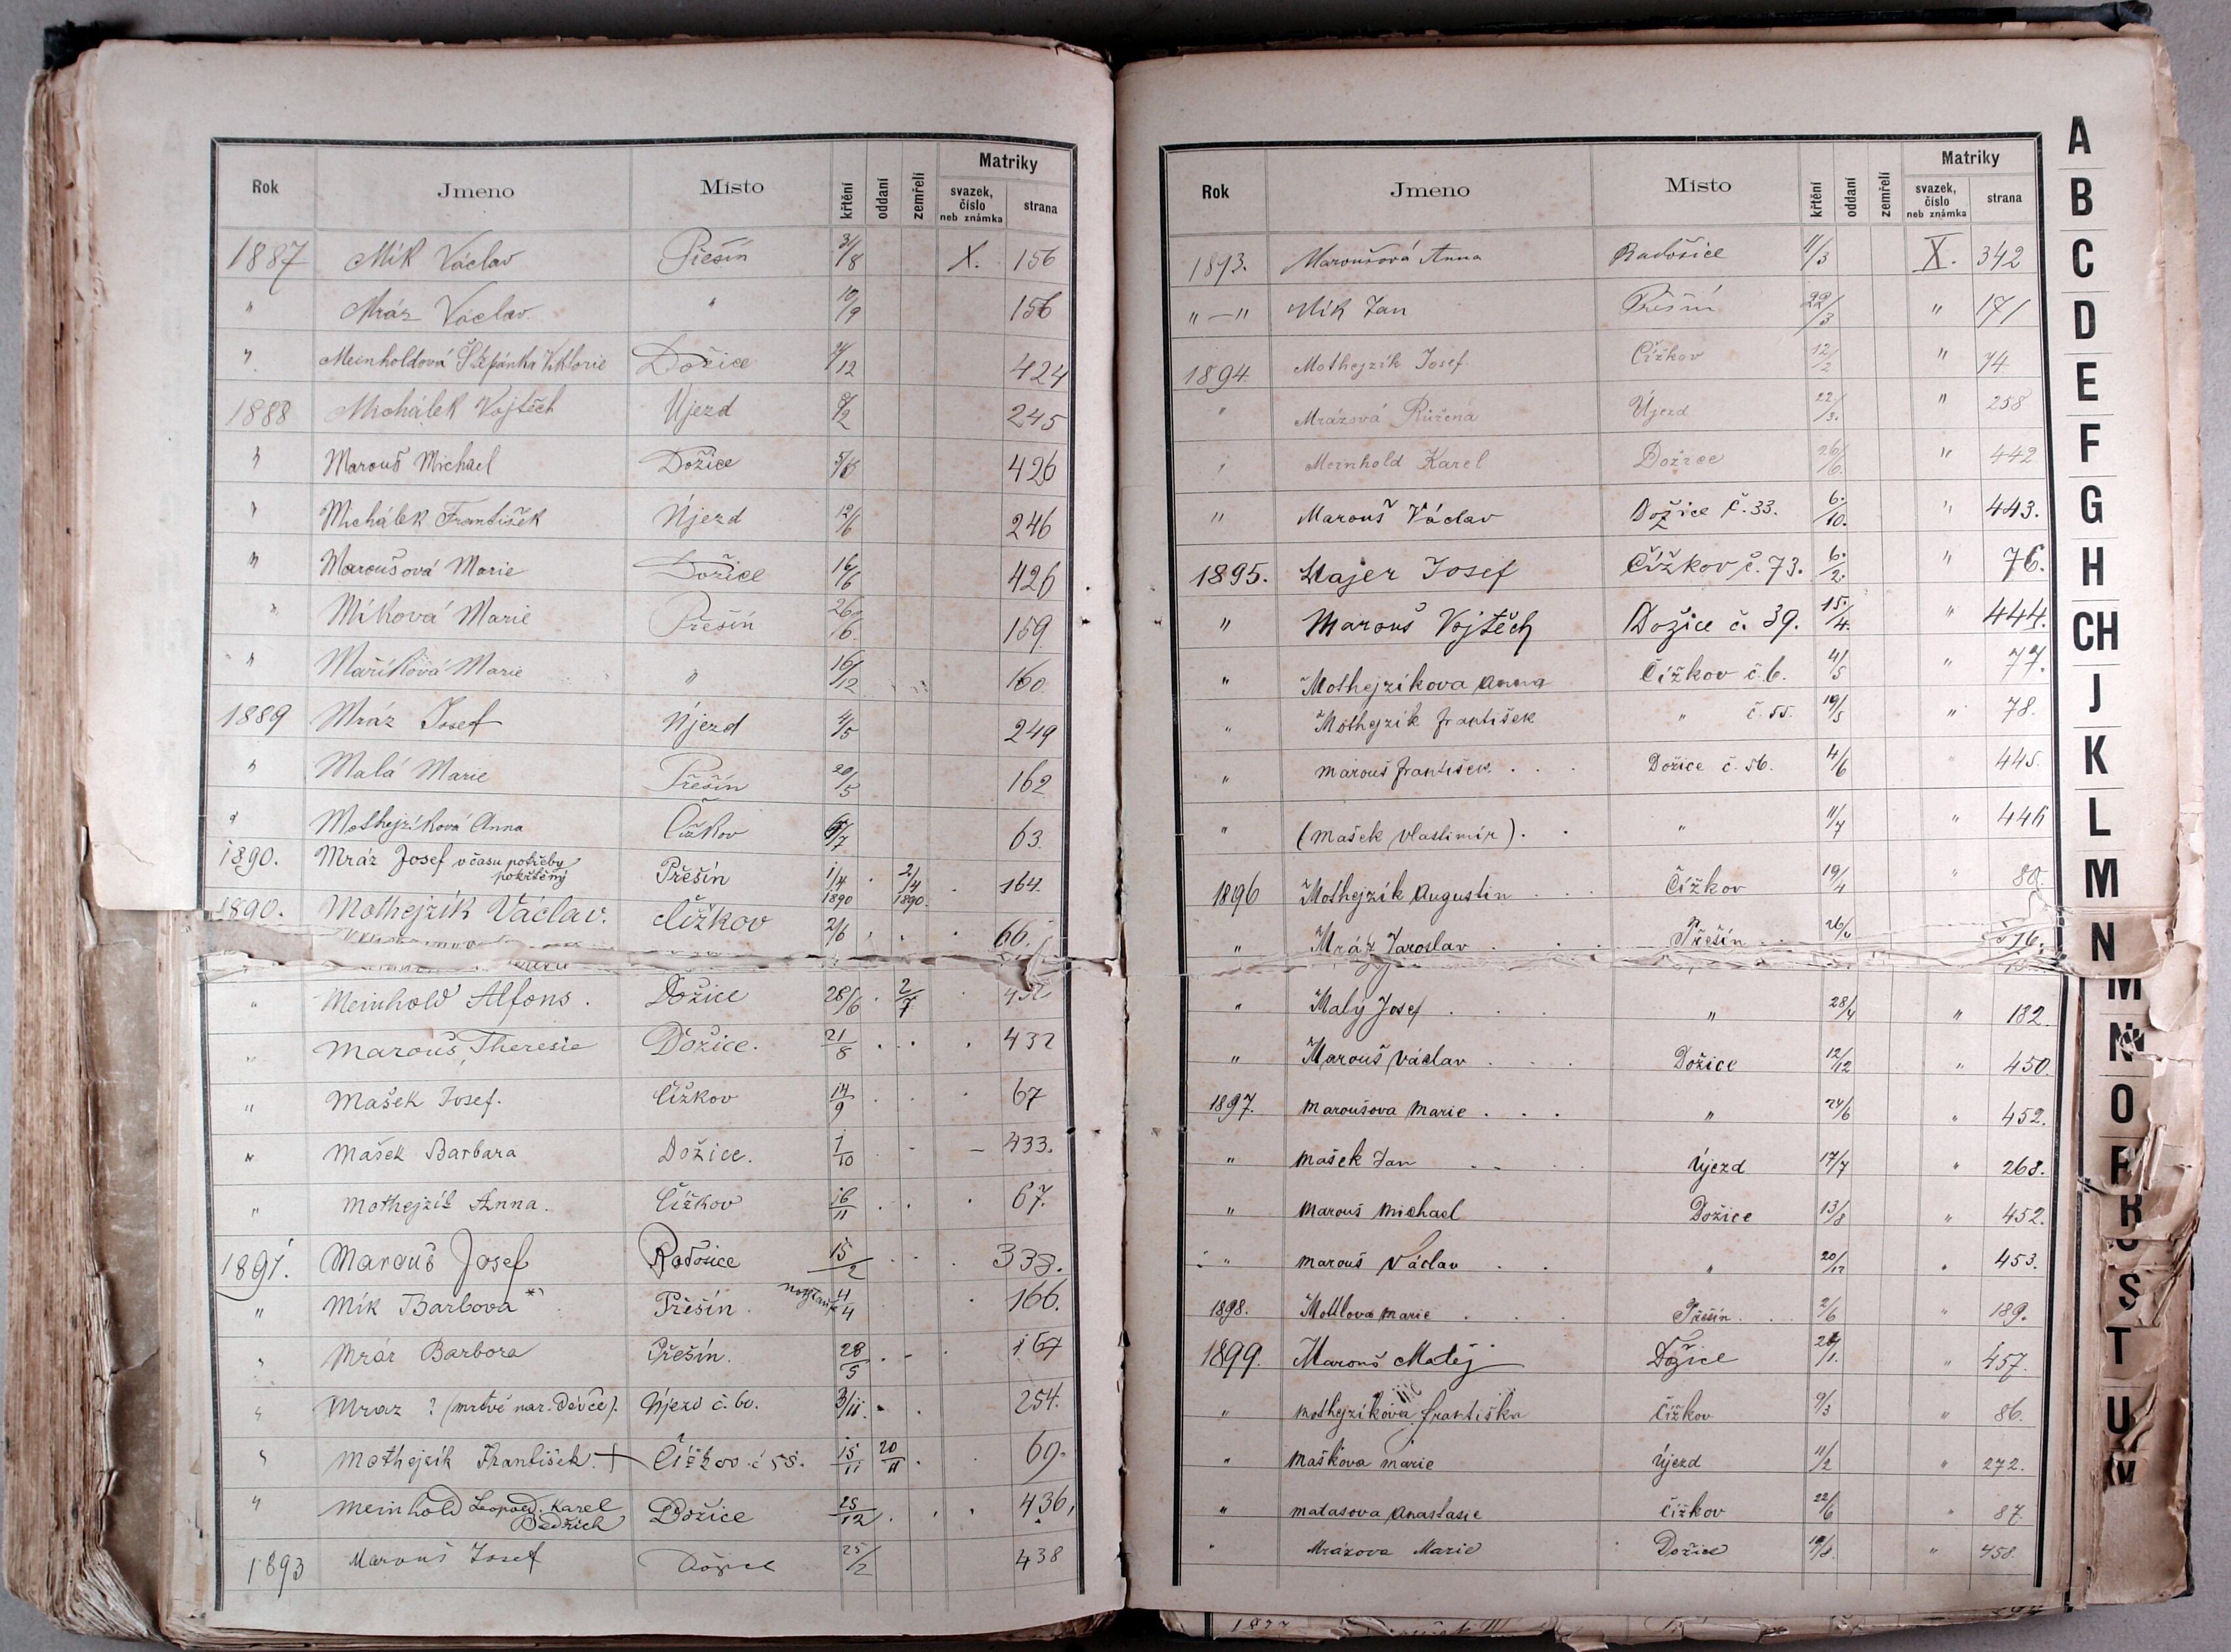 Rok Jmeno Místo křtění oddaní zemřelí Matriky svazek, číslo neb známka strana
1887 Mík Václav Přešín 31/8 X. 156
" Mráz Václav " 10/9 156
" Meinholdová Štěpánka Viktorie Dožice /12 424
1888 Michálek Vojtěch Újezd /2 245
" Marouš Michael Dožice 426
" Michálek František Újezd 12/6 246
" Maroušová Marie Dožice 16/6 426
" Míková Marie Přešín 26/6. 159
" Maříková Marie " 16/12 160
1889 Mráz Josef Újezd 4/5 249
" Malá Marie Přešín 20/5 162
" Mothejzíková Anna Čížkov /7 63
1890. Mráz Josef v času potřeby pokřtěný Přešín 1/4 1890 2/4 1890. 164.
1890. Mothejzík Václav. Čížkov 2/6 66.
" Meinhold Alfons. Dožice 28/6 2/7
" Marouš, Theresie Dožice. 21/8 432
" Mašek Josef. Čížkov 14/9 67
" Mašek Barbara Dožice. 1/10 433.
" Mothejzík Anna. Čížkov 16/11 67.
1891. Marouš Josef Radošice 15/2 333.
" Mík Barbora *) Přešín. 11/4 166.
" Mráz Barbora Přešín. 28/5 167
" Mraz ? (mrtvě nar. děvče). Újezd č. 60. 3/11. 254.
" Mothejzík František. + Čížkov č 55. 15/11 20/11 69.
" Meinhold Leopold. Karel Bedřich Dožice 25/12 436,
1893 Marouš Josef Dožice 25/2 438
Rok Jmeno Místo křtění oddaní zemřelí Matriky svazek, číslo neb známka strana
1893. Maroušová Anna Radošice 11/3 X. 342
" — " Mík Jan Přešín 22/3 " 171
1894 Mothejzík Josef Čížkov 12/2 " 74
" Mrázová Růžena Újezd 22/3. " 258
" Meinhold Karel Dožice 26/6. " 442
" Marouš Václav Dožice č. 33. 6./10. " 443.
1895. Majer Josef Čížkov č. 73. 6./2. " 76.
" Marouš Vojtěch Dožice č. 39. 15./4. " 444.
" Mothejzíkova Anna Čížkov č. 6. 4/5 " 77.
" Mothejzík František " č. 55. 19/5 " 78.
" Marouš František. . . Dožice č. 56. 4/6 " 445.
" (Mašek Vlastimír). . " 11/7 " 446
1896 Mothejzík Augustin . . . Čížkov 19/4 " 80.
" Mráz Jaroslav . . . Přešín . .
" Malý Josef . . . " 28/4 " 182.
" Marouš Václav . . . Dožice 12/12 " 450.
1897. Maroušova Marie . . . " 24/6 " 452.
" Mašek Jan . . . Újezd 17/7 " 268.
" Marouš Michael Dožice 13/8 " 452.
" Marouš Václav . . " 20/12 " 453.
1898. Mottlova Marie . . . Přešín . . . 2/6 " 189.
1899. Marouš Matěj Dožice /1. " 457.
" Mothejzíkova Františka Čížkov 9/3 " 86.
" Maškova Marie Újezd 11/2 " 272.
" Matasova Anastasie Čížkov 22/6 " 87.
" Mrázova Marie Dožice /8. " 458.
A
B
C
D
E
F
G
H
CH
J
K
L
M
N
M
N
O
P
R
S
T
U